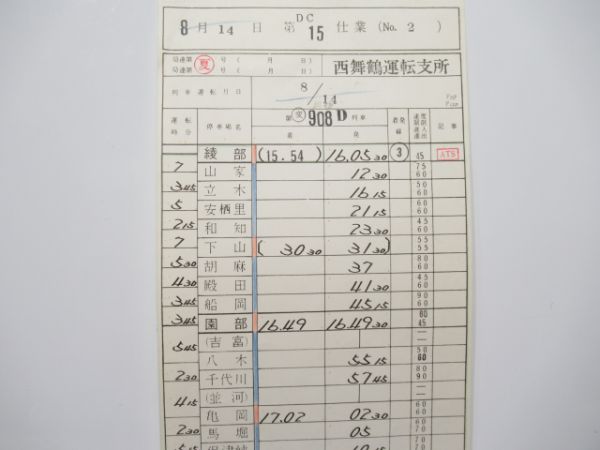 8月 14 日 第 DC 15 仕業 (No. 2 )
局達第 夏 号 ( 月 日)
局達第 号 ( 月 日)
西舞鶴運転支所
列車運転月日 8/14
運転時分 停車場名 変 908 D 列車 着 発 着発線 記事
綾部 (15.54) 16.05 30 ③ 45 ATS
7 山家 12 30 75 60
3 45 立木 16 15 50 60
5 安栖里 21 15 60 60
2 15 和知 23 30 45 60
7 下山 (30 30 31 30) 55 55
5 30 胡麻 37 80 60
4 30 殿田 41 30 60 60
3 45 船岡 45 15 90 60
3 45 園部 16.49 16.49 30 60 45
(吉富)
5 45 八木 55 15 50 60
2 30 千代川 57 45 80 90
(並河)
4 15 亀岡 17.02 02 30 60 60
2 30 馬堀 05 70 70